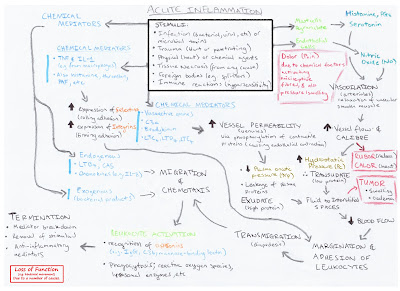 ACUTE INFLAMMATION
STIMULI:
• Infection (bacterial, viral, etc) or
microbial toxins
• Trauma (blunt or penetrating)
• Physical (heat) or chemical agents
• Tissue Necrosis (from any cause)
• Foreign bodies (eg. splinter)
• Immune reactions (hypersensitivity)
CHEMICAL
MEDIATORS
CHEMICAL MEDIATORS
• TNF & IL-1
(eg from macrophages)
• Also histamine, thrombin,
PAF, etc.
Expression of Selectins
(rolling adhesion)
Expression of Integrins
(firming adhesion)
CHEMICAL MEDIATORS
• Vasoactive amines
• C5a
• Bradykinin
• LTC4, LTD4, LTE4
Histamine, PGs,
Serotonin
Endothelial
cells
Nitric
Oxide (NO)
Dolor (Pain)
due to chemical factors
pressure
VASODILATION
(arterioles)
relaxation of vascular
smooth muscle
VESSEL PERMEABILITY
(venules)
via phosphorylation of contractile
proteins (causing endothelial retraction)
Vessel flow &
CALIBRE
RUBOR (redness)
CALOR (heat)
Hydrostatic
Pressure
Plasma oncotic
pressure
• Leakage of plasma
proteins
TRANSUDATE
(low protein)
EXUDATE
(high protein)
Fluid in Interstitial
SPACES
TUMOR
• swelling
• oedema
BLOOD FLOW
Endogenous
• LTB4, C5a,
Exogenous
(bacterial products)
MIGRATION
&
CHEMOTAXIS
TRANSMIGRATION
(diapedesis)
MARGINATION &
ADHESION OF
LEUKOCYTES
LEUKOCYTE ACTIVATION
• recognition of opsonins
• Phagocytosis; reactive oxygen species,
lysosomal enzymes, etc
TERMINATION
• Mediator breakdown
• Removal of stimulus
• Anti-inflammatory
mediators
Loss of Function